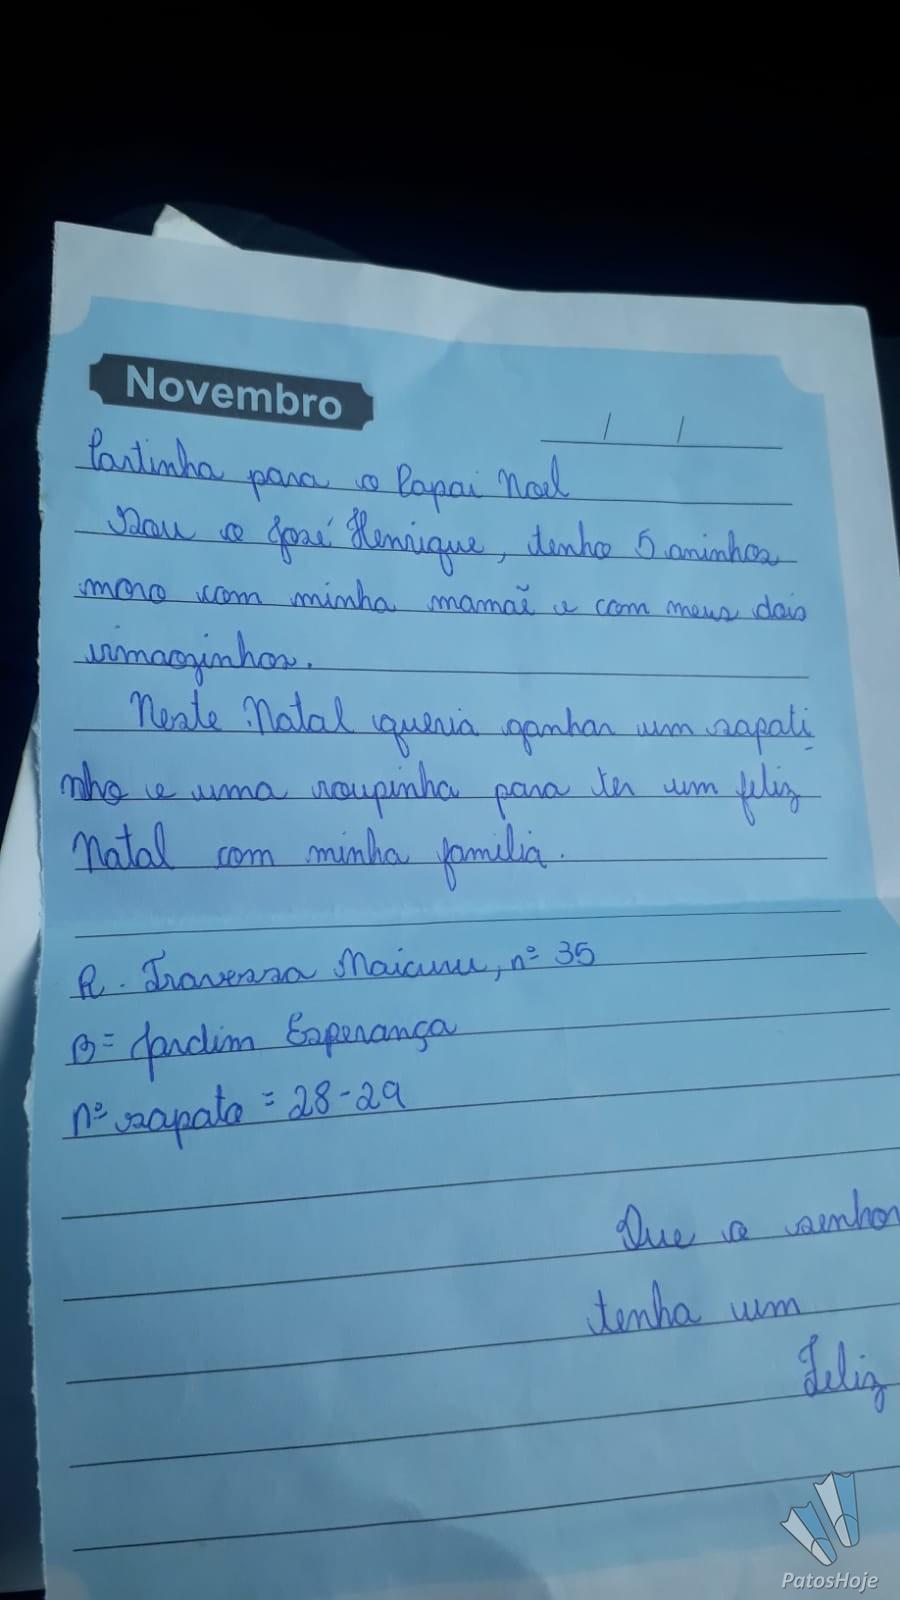 Novembro
/ /
Cartinha para o Papai Noel
Sou o José Henrique, tenho 5 aninhos
moro com minha mamãe e com meus dois
irmaozinhos.
Neste Natal queria ganhar um sapati
nho e uma roupinha para ter um feliz
Natal com minha familia.
R. Travessa Maicuru, nº 35
B= Jardim Esperança
nº sapato = 28-29
Que o senhor
tenha um
Feliz
PatosHoje